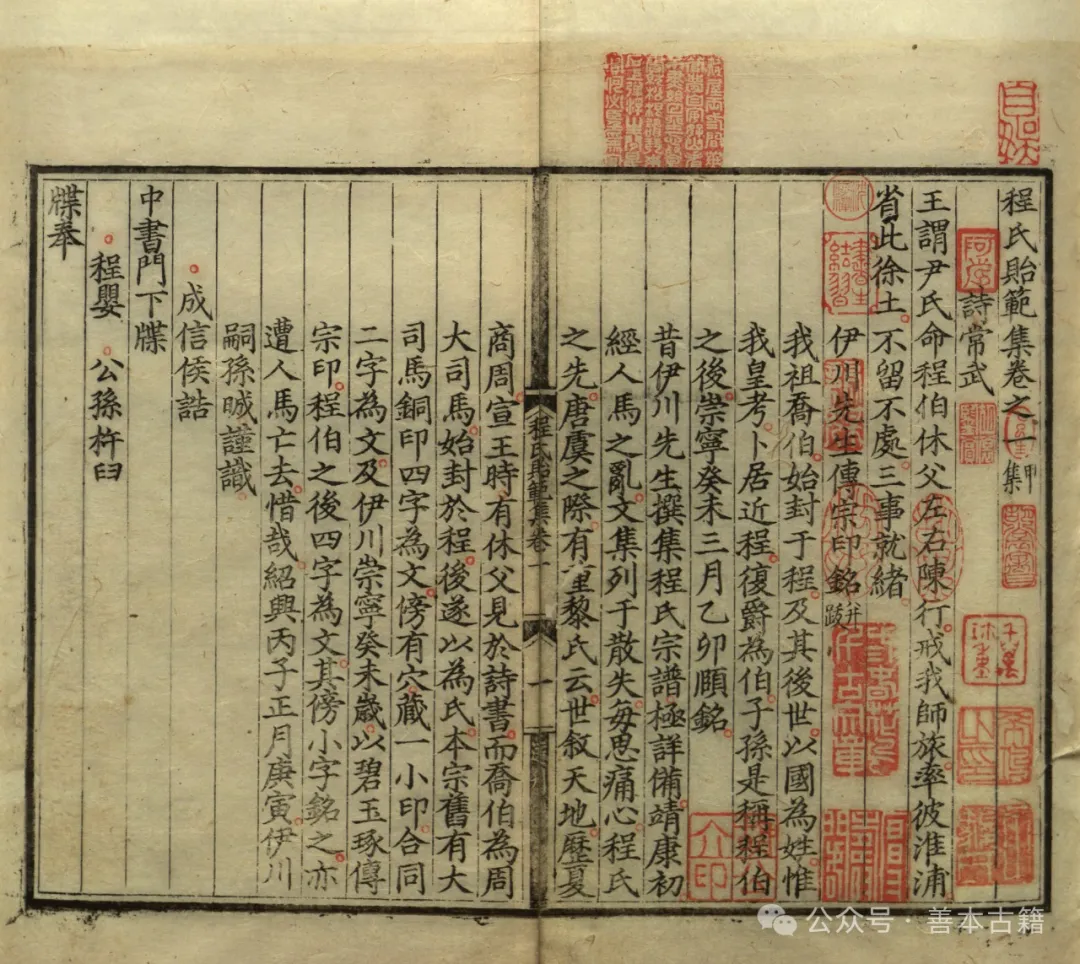 程氏貽範集卷之一 甲集
詩常武
王謂尹氏命程伯休父左右陳行戒我師旅率彼淮浦
省此徐土不留不處三事就緒
伊川先生傳宗印銘并跋
我祖喬伯始封于程及其後世以國為姓惟
我皇考卜居近程復爵為伯子孫是稱程伯
之後崇寧癸未三月乙卯頤銘
昔伊川先生撰集程氏宗譜極詳備靖康初
經人馬之亂文集列于散失每思痛心程氏
之先唐虞之際有重黎氏云世敘天地歷夏
商周宣王時有休父見於詩書而喬伯為周
大司馬始封於程後遂以為氏本宗舊有大
司馬銅印四字為文傍有穴藏一小印合同
二字為文及伊川崇寧癸未歲以碧玉琢傳
宗印程伯之後四字為文其傍小字銘之亦
遭人馬亡去惜哉紹興丙子正月庚寅伊川
嗣孫晠謹識
成信侯誥
中書門下牒
程嬰 公孫杵臼
牒奉
程氏貽範集卷一
一
公众号 · 善本古籍